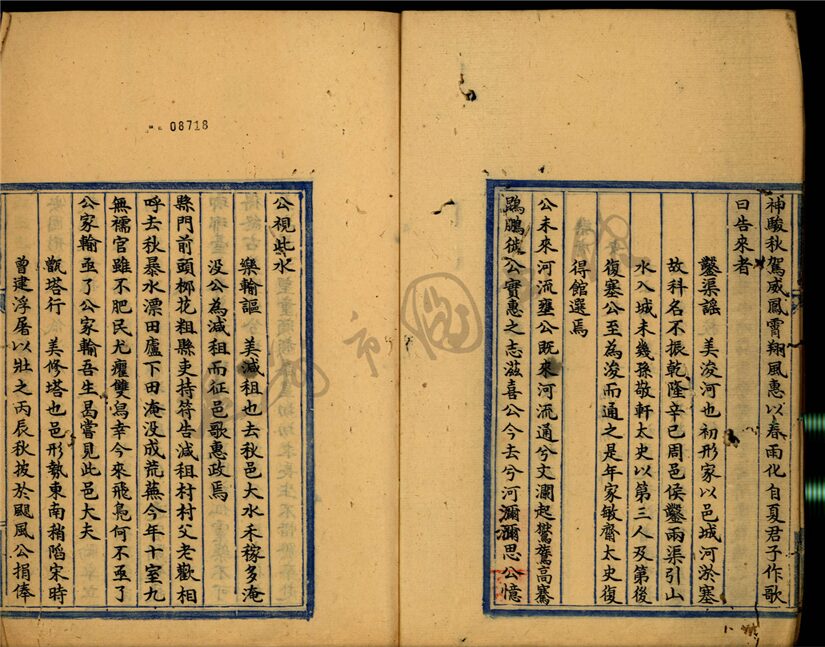 神駿秋駕威鳳霄翔風惠以春雨化自夏君子作歌
曰告來者
鑿渠謡 美浚河也初形家以邑城河淤塞
故科名不振乾隆辛巳周邑侯鑿兩渠引山
水入城未幾孫敬軒太史以第三人及第後
復塞公至為浚而通之是年家敏齋太史復
得館選焉
公未來河流壅公既來河流通兮文瀾起鸑鷟高騫
鵾鵬徙公實惠之志滋喜公今去兮河瀰瀰思公憶
公視此水
樂輸謳 美減租也去秋邑大水禾稼多淹
没公為減租而征邑歌惠政焉
縣門前頭梆花粗縣吏持符告減租村村父老歡相
呼去秋暴水漂田廬下田淹没成荒蕪今年十室九
無襦官雖不肥民尤癯雙舄幸今來飛鳧何不亟了
公家輸亟了公家輸吾生曷嘗見此邑大夫
甑塔行 美修塔也邑形埶東南稍陷宋時
曾建浮屠以壯之丙辰秋披於颶風公捐俸
08718